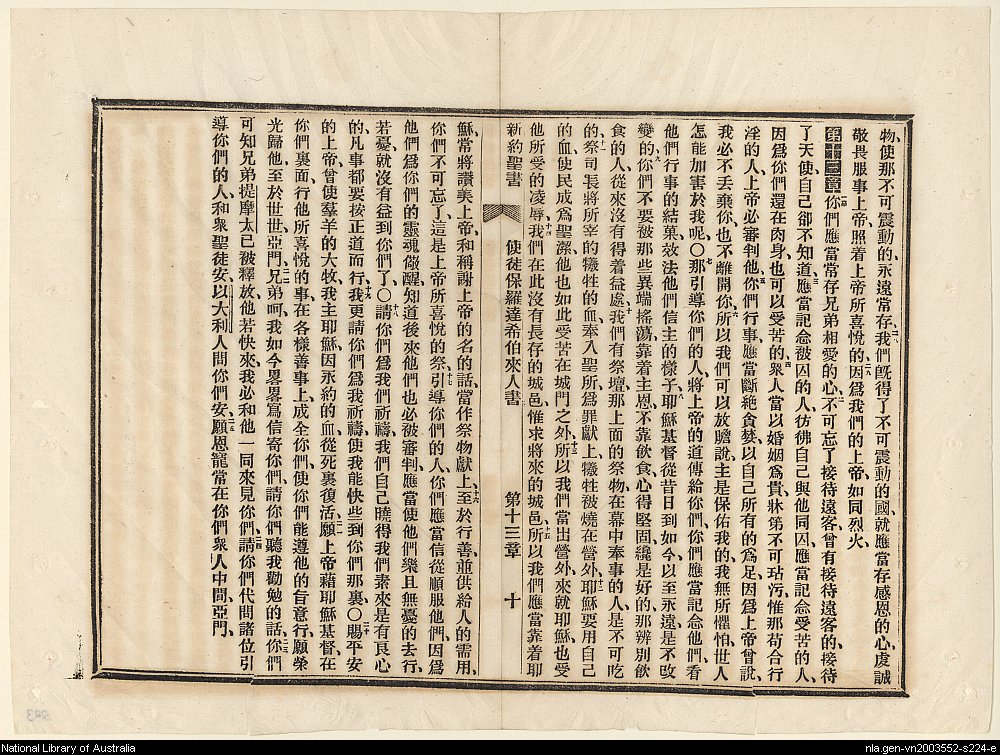 物使那不可震動的永遠常存、二八我們旣得了不可震動的國就應當存感恩的心虔誠
敬畏服事上帝照着上帝所喜悅的、二九因爲我們的上帝如同烈火、
第十三章一你們應當常存兄弟相愛的心、二不可忘了接待遠客曾有接待遠客的接待
了天使自己卻不知道、三應當記念被囚的人彷彿自己與他同囚應當記念受苦的人
因爲你們還在肉身也可以受苦的、四衆人當以婚姻爲貴牀笫不可玷污惟那苟合行
淫的人上帝必審判他、五你們行事應當斷絶貪婪以自己所有的爲足因爲上帝曾說、
我必不丟棄你也不離開你、六所以我們可以放膽說主是保佑我的我無所懼怕世人
怎能加害於我呢○七那引導你們的人將上帝的道傳給你們、你們應當記念他們看
他們行事的結菓效法他們信主的樣子、八耶穌基督從昔日到如今以至永遠是不攺
變的、九你們不要被那些異端搖蕩靠着主恩不靠飲食心得堅固纔是好的那辨別飲
食的人從來沒有得着益處、十我們有祭壇那上面的祭物在幕中奉事的人是不可吃
的、十一祭司長將所宰的犧牲的血奉入聖所爲罪獻上犧牲被燒在營外、十二耶穌要用自己
的血使民成爲聖潔他也如此受苦在城門之外、十三所以我們當出營外來就耶穌也受
他所受的凌辱、十四我們在此沒有長存的城邑惟求將來的城邑、十五所以我們應當靠着耶
新約聖書 使徒保羅達希伯來人書 第十三章 十
穌常將讚美上帝和稱謝上帝的名的話當作祭物獻上、十六至於行善並供給人的需用、
你們不可忘了這是上帝所喜悅的祭、十七引導你們的人你們應當信從順服他們因爲
他們爲你們的靈魂儆醒知道後來他們也必被審判應當使他們樂且無憂的去行、
若憂就沒有益到你們了○十八請你們爲我們祈禱我們自己曉得我們素來是有良心
的凡事都要按正道而行、十九我更請你們爲我祈禱使我能快些到你們那裏○二十賜平安
的上帝曾使羣羊的大牧我主耶穌因永約的血從死裏復活、二一願上帝藉耶穌基督在
你們裏面行他所喜悅的事在各樣善事上成全你們使你們能遵他的旨意行願榮
光歸他至於世世亞門、二二兄弟呵我如今畧畧爲信寄你們請你們聽我勸勉的話、二三你們
可知兄弟提摩太已被釋放他若快來我必和他一同來見你們、二四請你們代問諸位引
導你們的人和衆聖徒安以大利人問你們安、二五願恩寵常在你們衆人中間亞門、
National Library of Australia
nla.gen-vn2003552-s224-e